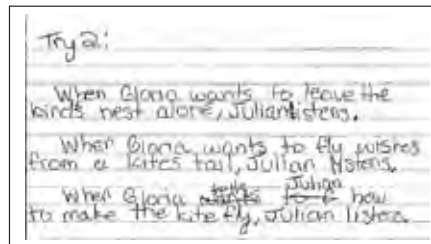 Try 2:
When Gloria wants to leave the
birds nest alone, Julian listens.
When Gloria wants to fly wishes
from a kites tail, Julian listens.
When Gloria tells Julian how
to make the kite fly, Julian listens.